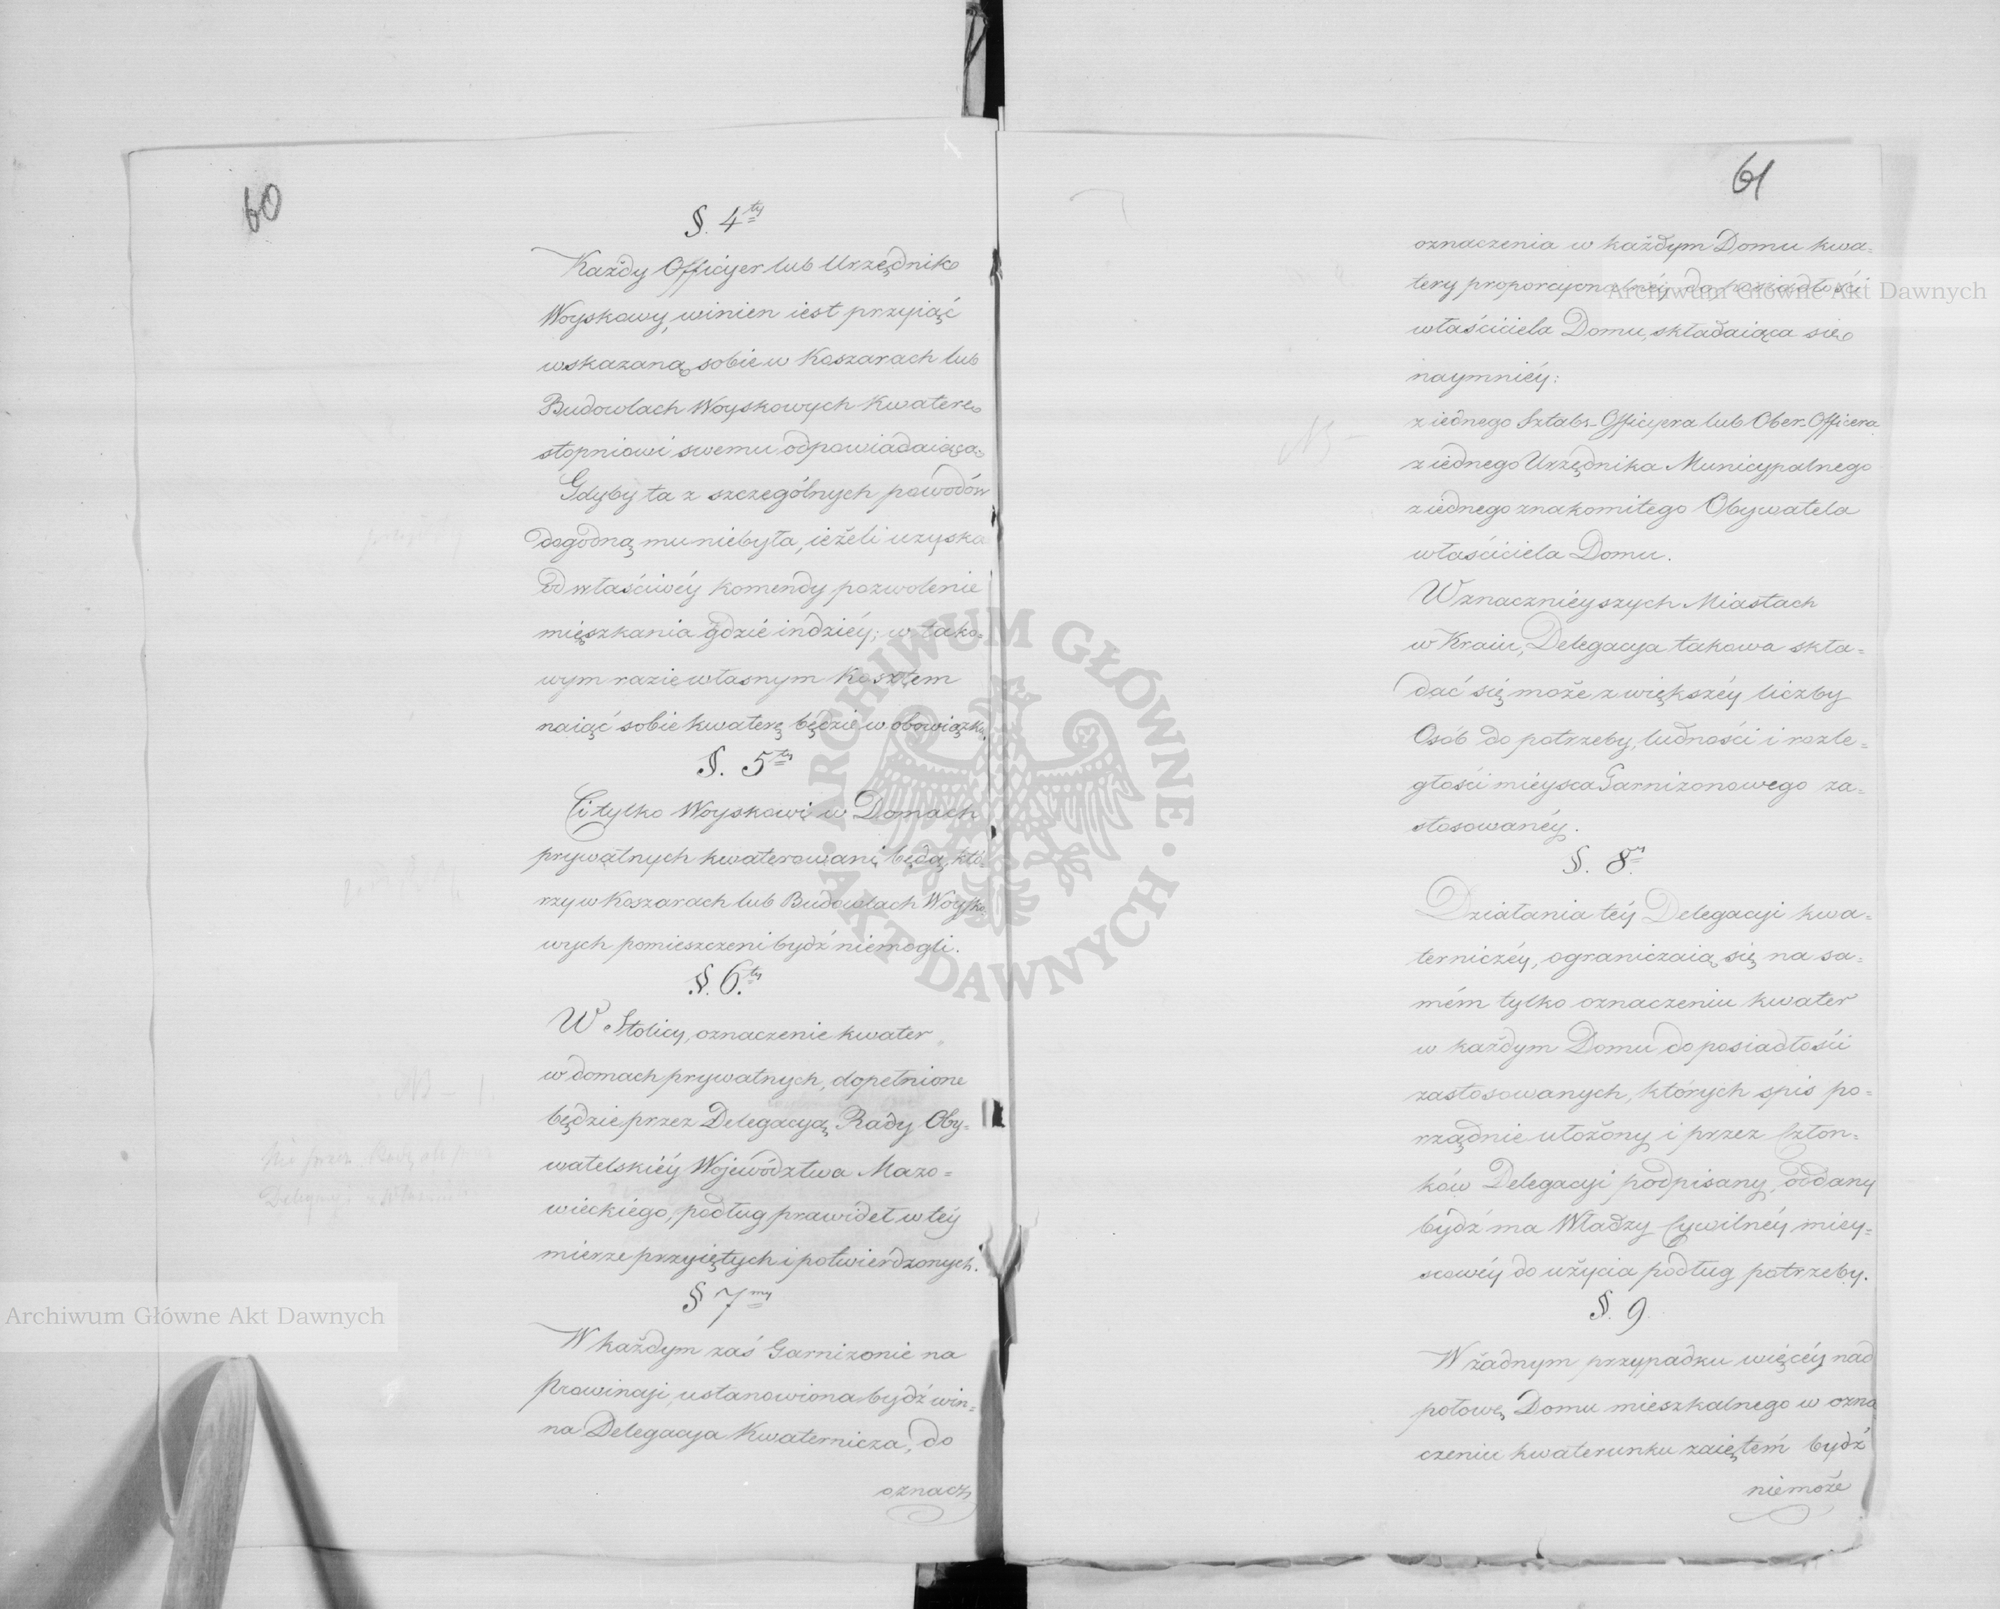 60
§. 4ty
Każdy Officyer lub Urzędnik
Woyskowy, winien iest przyiąć
wskazaną sobie w Koszarach lub
Budowlach Woyskowych Kwaterę
stopniowi swemu odpowiadaiącą.
Gdyby ta z szczególnych powodów
dogodną mu niebyła, ieżeli uzyska
od właściwéy Komendy pozwolenie
miészkania gdzié indziéy; w tako-
wym razie własnym Kosztem
naiąć sobie kwaterę będzie w obowiązku.
§. 5ty
Ci tylko Woyskowi w Domach
prywatnych kwaterowani będą, któ-
rzy w Koszarach lub Budowlach Woysko
wych pomieszczeni bydź niemogli.
§. 6.ty
W Stolicy, oznaczenie kwater
w domach prywatnych, dopełnione
będzie przez Delegacyą Rady Oby-
watelskiéy Województwa Mazo-
wieckiego, podług prawideł w téy
mierze przyiętych i potwierdzonych.
§ 7my
W każdym zaś Garnizonie na
Prowincyi, ustanowiona bydź win-
na Delegacya Kwaternicza, do
oznacz
NB - 1.
61
oznaczenia w każdym Domu kwa-
tery proporcyonalnéy do posiadłości
właściciela Domu, składaiąca się
naymniéy:
z iednego Sztabs-Officyera lub Ober-Officera
z iednego Urzędnika Municypalnego
z iednego znakomitego Obywatela
właściciela Domu.
W znacznieyszych Miastach
w Kraiu, Delegacya takowa skła-
dać się może z większéy liczby
Osób do potrzeby, ludności i rozle-
głości mieysca Garnizonowego za-
stosowanéy.
§. 8.
Działania téy Delegacyi kwa-
terniczéy, ograniczaią się na sa-
mém tylko oznaczeniu kwater
w każdym Domu do posiadłości
zastosowanych, których spis po-
rządnie ułożony i przez Człon-
ków Delegacyi podpisany, oddany
bydź ma Władzy Cywilnéy miey-
scowéy do użycia podług potrzeby.
§. 9.
W żadnym przypadku więcéy nad
połowę Domu mieszkalnego w ozna
czeniu kwaterunku zaiętém bydź
niemoże
NB -
Archiwum Główne Akt Dawnych
Archiwum Główne Akt Dawnych
ARCHIWUM GŁÓWNE · AKT DAWNYCH ·